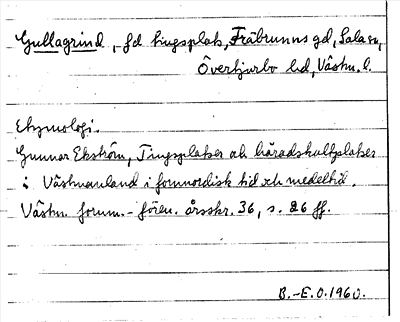 Gullagrind, fd tingsplats, Fräbrunns gd, Sala sn,
Övertjurbo hd, Västm. l.
Etymologi.
Gunnar Ekström, Tingsplatser och häradskultplatser
i Västmanland i fornnordisk tid och medeltid.
Västm. fornm.-fören. årsskr. 36, s. 26 ff.
B.-E.O. 1960.